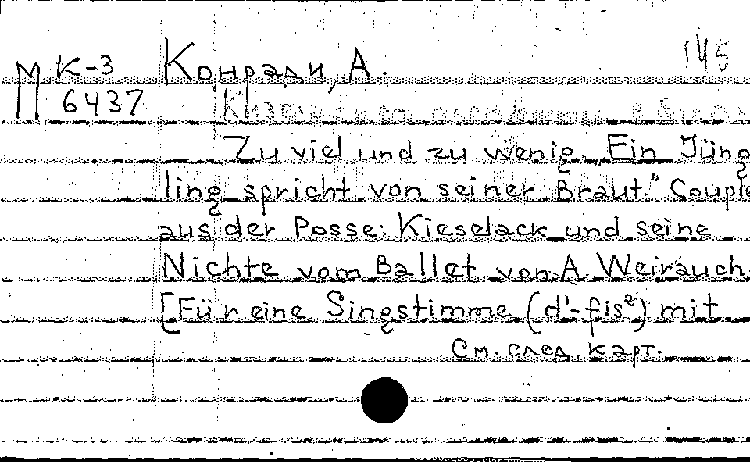 145
М К-3 Конради, А.
6437
Zu viel und zu wenig. „Ein Jüng
ling spricht von seiner Braut." Couple
aus der Posse: Kieselack und seine
Nichte vom Ballet von A. Weirauch.
[Für eine Singstimme (d¹-fis²) mit
См. след. карт.